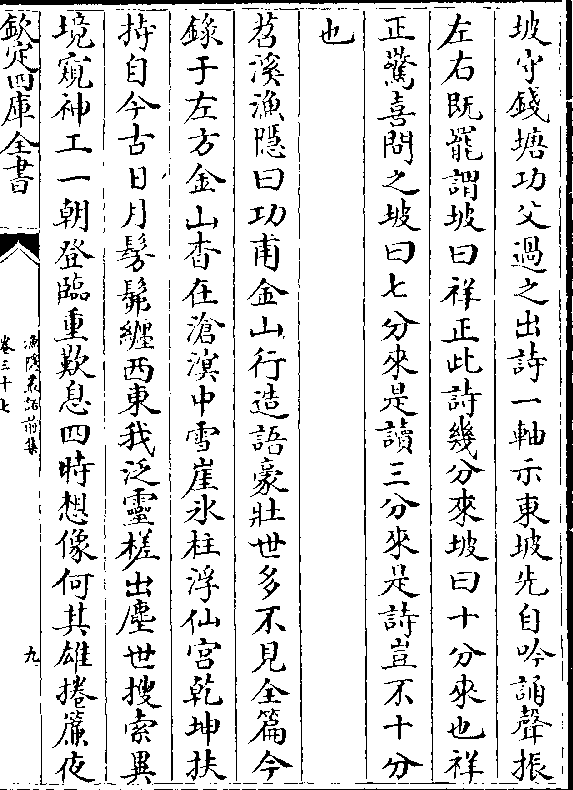 坡守錢塘功父過之出詩一軸示東坡先自吟誦聲振
左右既罷謂坡曰祥正此詩幾分來坡曰十分來也祥
正驚喜問之坡曰七分來是讀三分來是詩豈不十分
也
苕溪漁隱曰功甫金山行造語豪壯世多不見全篇今
錄于左方金山杳在滄溟中雪崖氷柱浮仙宮乾坤扶
持自今古日月髣髴纏西東我泛靈槎出塵世搜索異
境窺神工一朝登臨重歎息四時想像何其雄捲簾夜
欽定四庫全書
漁隱叢話前集
卷三十七
九